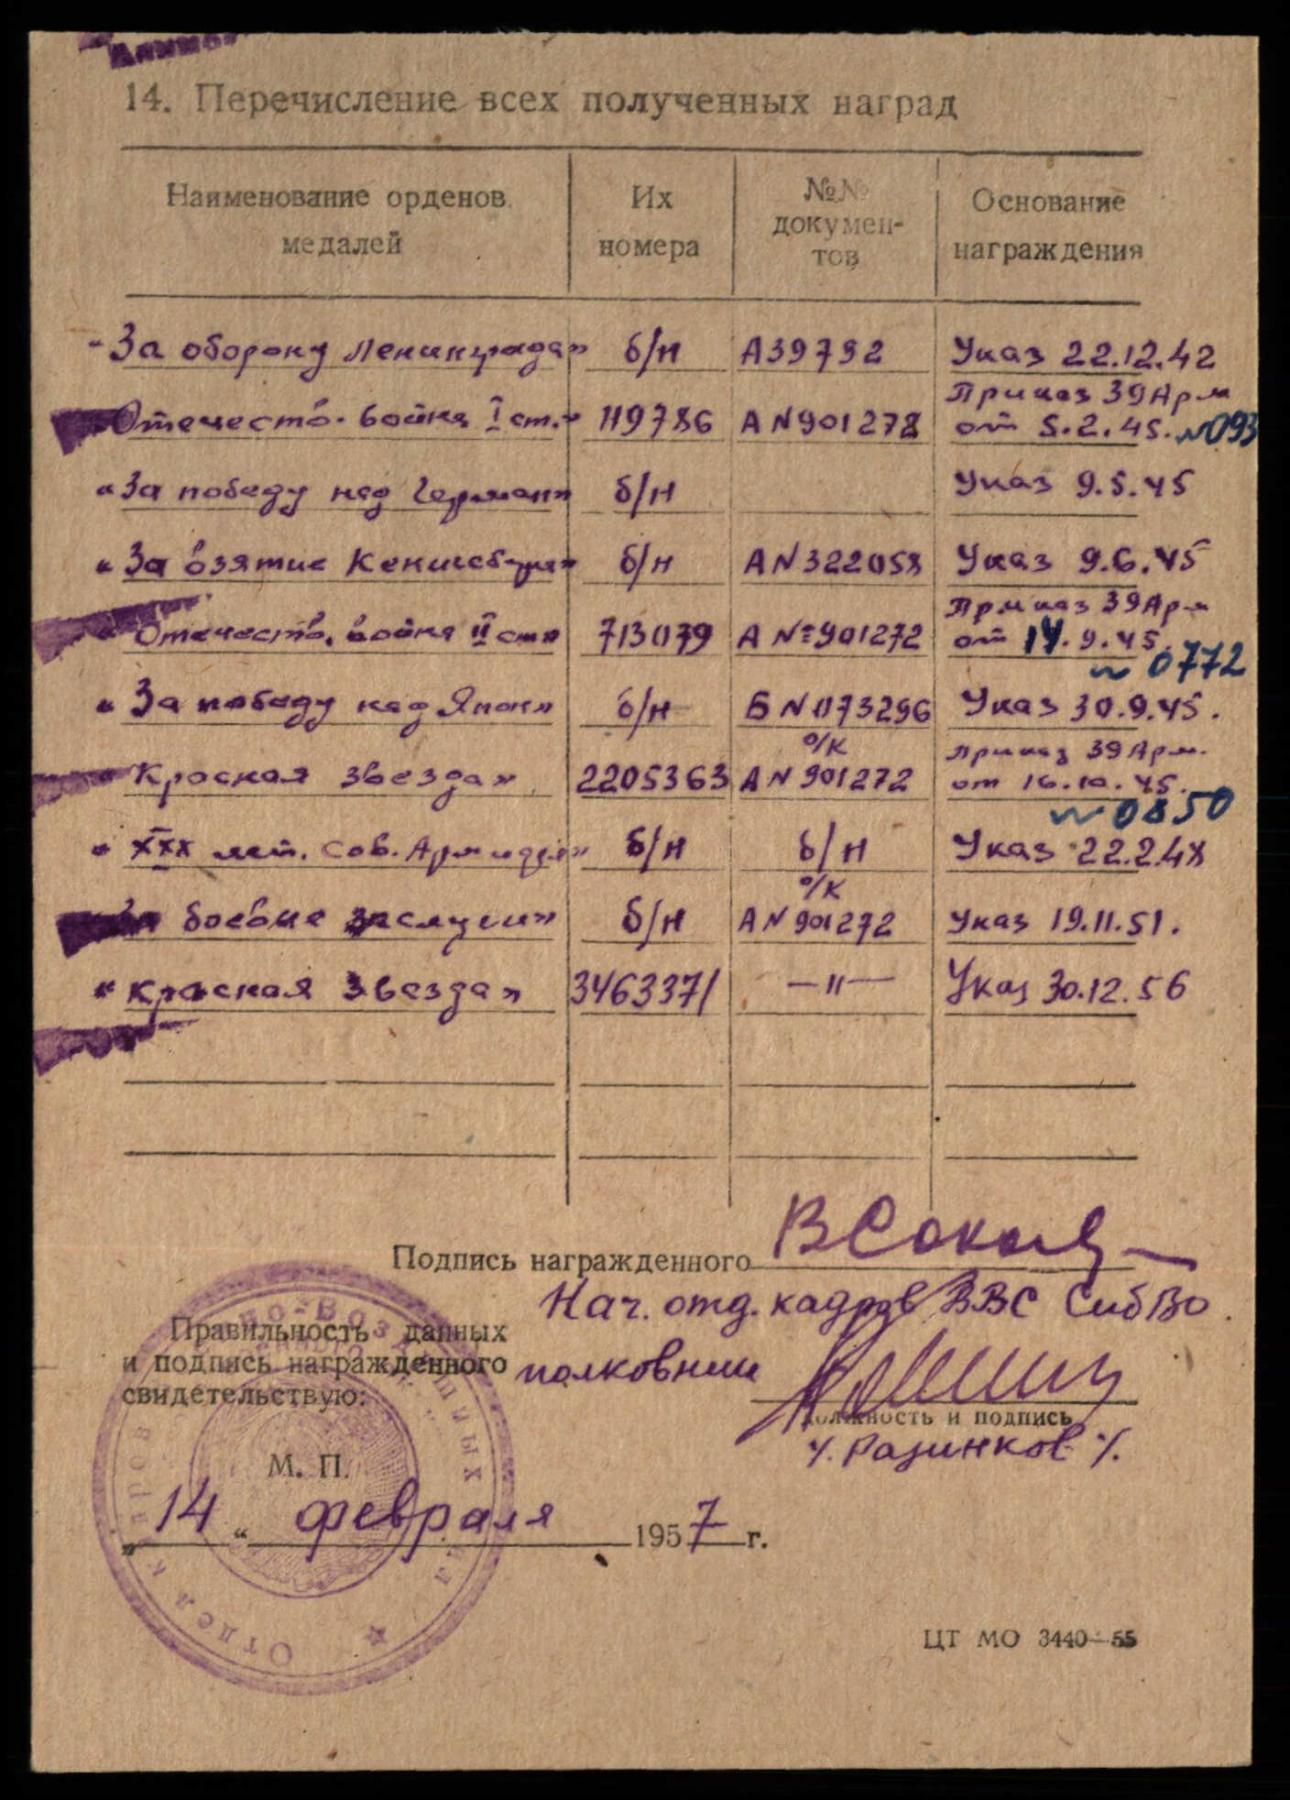 14. Перечисление всех полученных наград
Наименование орденов медалей | Их номера | №№ докумен-тов | Основание награждения
"За оборону Ленинграда" б/н А39792 Указ 22.12.42
Приказ 39 Арм
Отечеств. война I ст." 119786 А N 901278 от 5.2.45. N 093
"За победу над Герман" б/н Указ 9.5.45
"За взятие Кенигсберга" б/н А N 322058 Указ 9.6.45
Приказ 39 Арм
"Отечеств. война II ст" 713079 А № 901272 от 14.9.45.
N 0772
"За победу над Япон" б/н Б N 073296 Указ 30.9.45.
о/к Приказ 39 Арм.
"Красная Звезда" 2205363 А N 901272 от 16.10.45.
N 0850
"XXX лет. Сов. Армии б/н б/н Указ 22.2.48
о/к
За боевые заслуги" б/н А N 901272 Указ 19.11.51.
"Красная Звезда" 3463371 —"— Указ 30.12.56
Подпись награжденного
Нач. отд. кадров ВВС СибВО.
Правильность данных
и подпись награжденного полковник
свидетельствую:
должность и подпись
/. Разинков /.
М. П.
„14“ февраля 1957 г.
Отдел кадров
ЦТ МО 3440—55